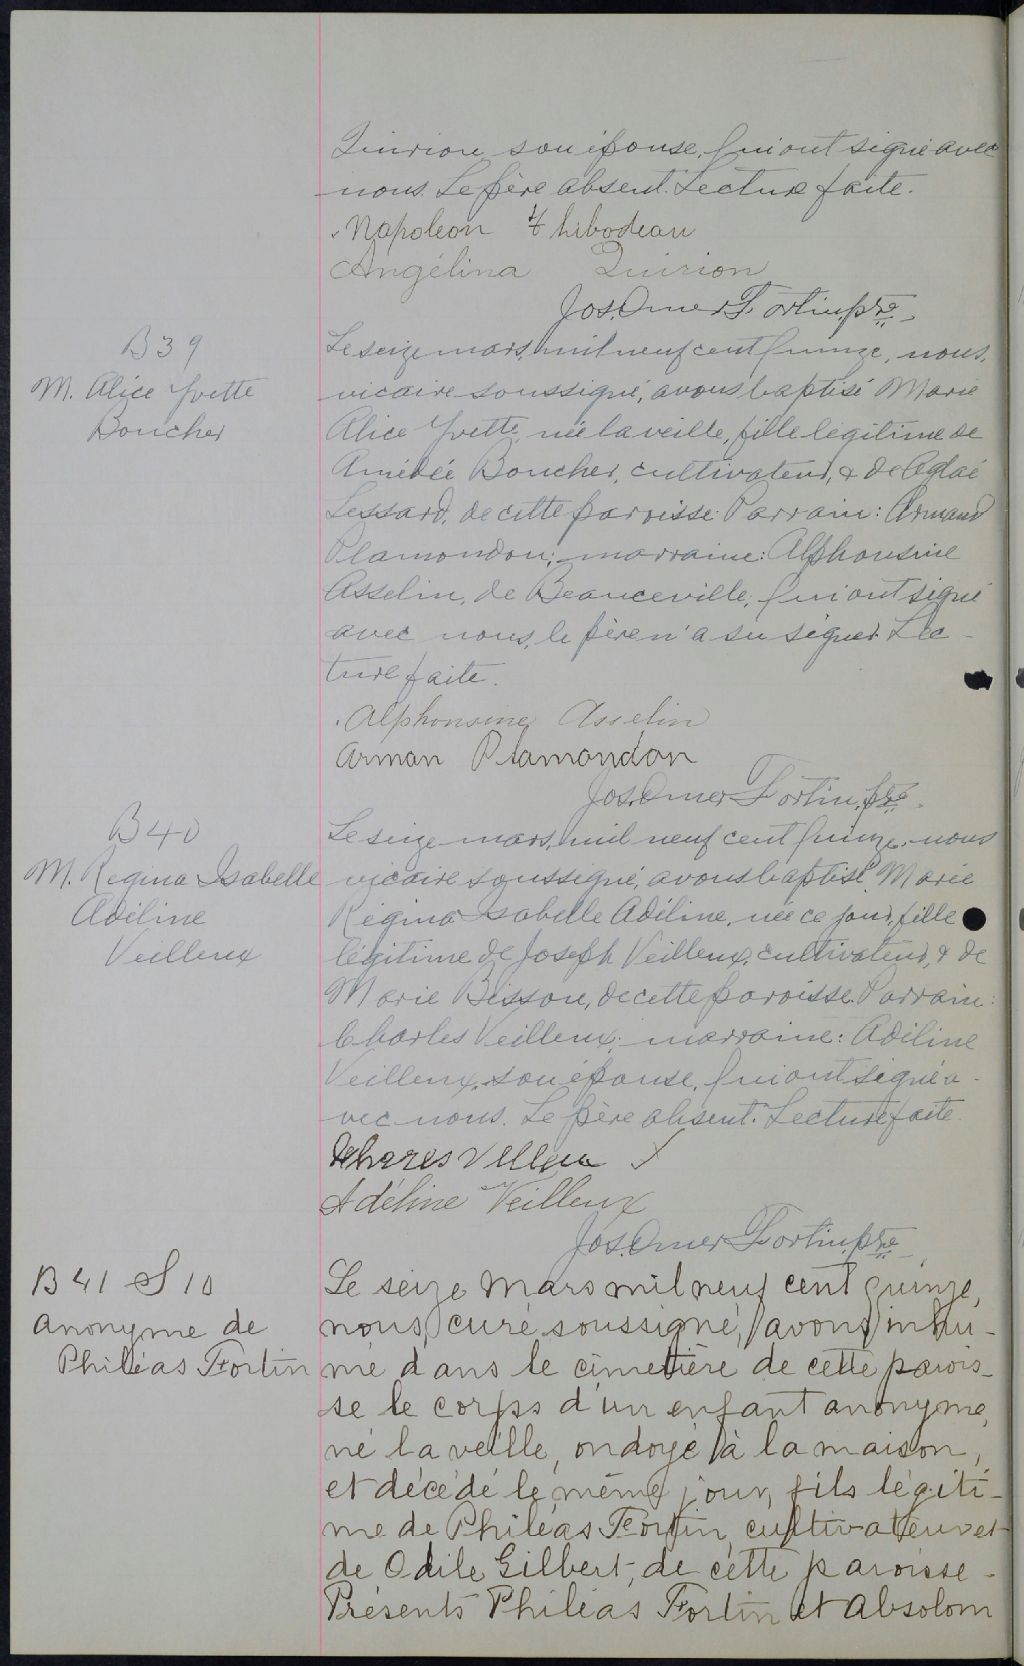 Quirion son épouse, qui ont signé avec
nous. Le père absent. Lecture faite.
Napoleon Thibodeau
Angélina Quirion
Jos. Omer Fortin, ptre
B 39
M. Alice Yvette
Boucher
Le seize mars, mil neuf cent quinze, nous,
vicaire soussigné, avons baptisé Marie
Alice Yvette, née la veille, fille légitime de
Amédée Boucher, cultivateur, & de Aglaé
Lessard, de cette paroisse. Parrain: Armand
Plamondon; marraine: Alphonsine
Asselin, de Beauceville, qui ont signé
avec nous, le père n'a su signer. Lec-
ture faite.
Alphonsine Asselin
Arman Plamondon
Jos. Omer Fortin, ptre
B 40
M. Regina Isabelle
Adéline
Veilleux
Le seize mars, mil neuf cent quinze, nous
vicaire soussigné, avons baptisé Marie
Régina Isabelle Adéline, née ce jour, fille
légitime de Joseph Veilleux, cultivateur, & de
Marie Bisson, de cette paroisse. Parrain:
Charles Veilleux; marraine: Adéline
Veilleux, son épouse, qui ont signé a-
vec nous. Le père absent. Lecture faite.
Adéline Veilleux
Jos. Omer Fortin, ptre
B 41 S 10
anonyme de
Philéas Fortin
Le seize Mars mil neuf cent quinze,
nous, curé soussigné, avons inhu-
mé dans le cimetière de cette parois-
se le corps d'un enfant anonyme,
né la veille, ondoyé à la maison,
et décédé le même jour, fils légiti-
me de Philéas Fortin, cultivateur et
de Odile Gilbert, de cette paroisse.
Présents Philéas Fortin et Absolom